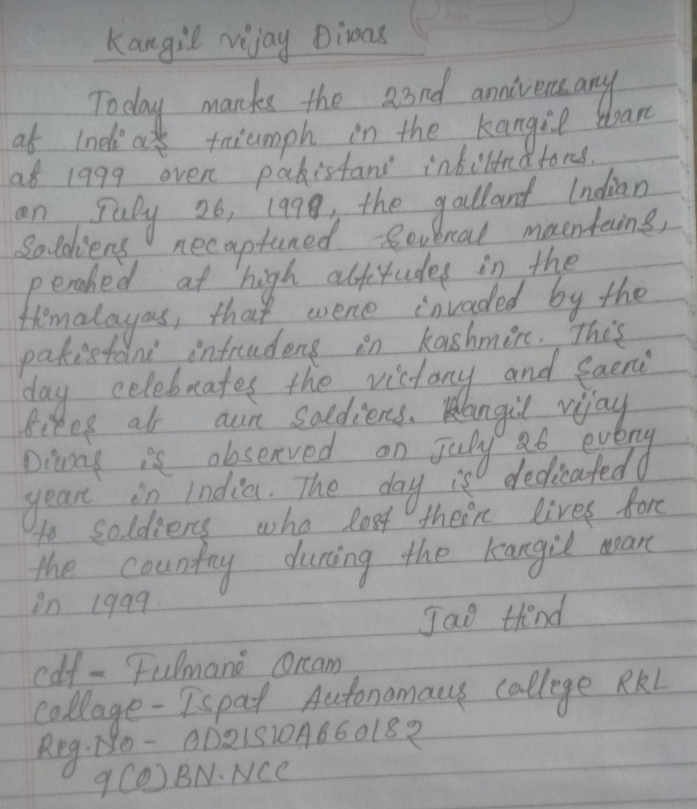 Kangil vijay Diwas
Today marks the 23rd anniversary
of India's triumph in the Kangil war
of 1999 over pakistani infiltrators.
on July 26, 1999, the gallant Indian
Soldiers recaptured several mountains,
perched at high altitudes in the
Himalayas, that were invaded by the
pakistani intruders in Kashmir. This
day celebrates the victory and Sacri
fices of our Soldiers. Kangil vijay
Diwas is observed on July 26 every
year in India. The day is dedicated
to soldiers who lost their lives for
the country during the Kangil war
in 1999.
Jai Hind
cdt - Fulmani Oram
Collage - Ispat Autonomous College RKL
Reg.No - OD21SWA660182
9(O)BN.NCC